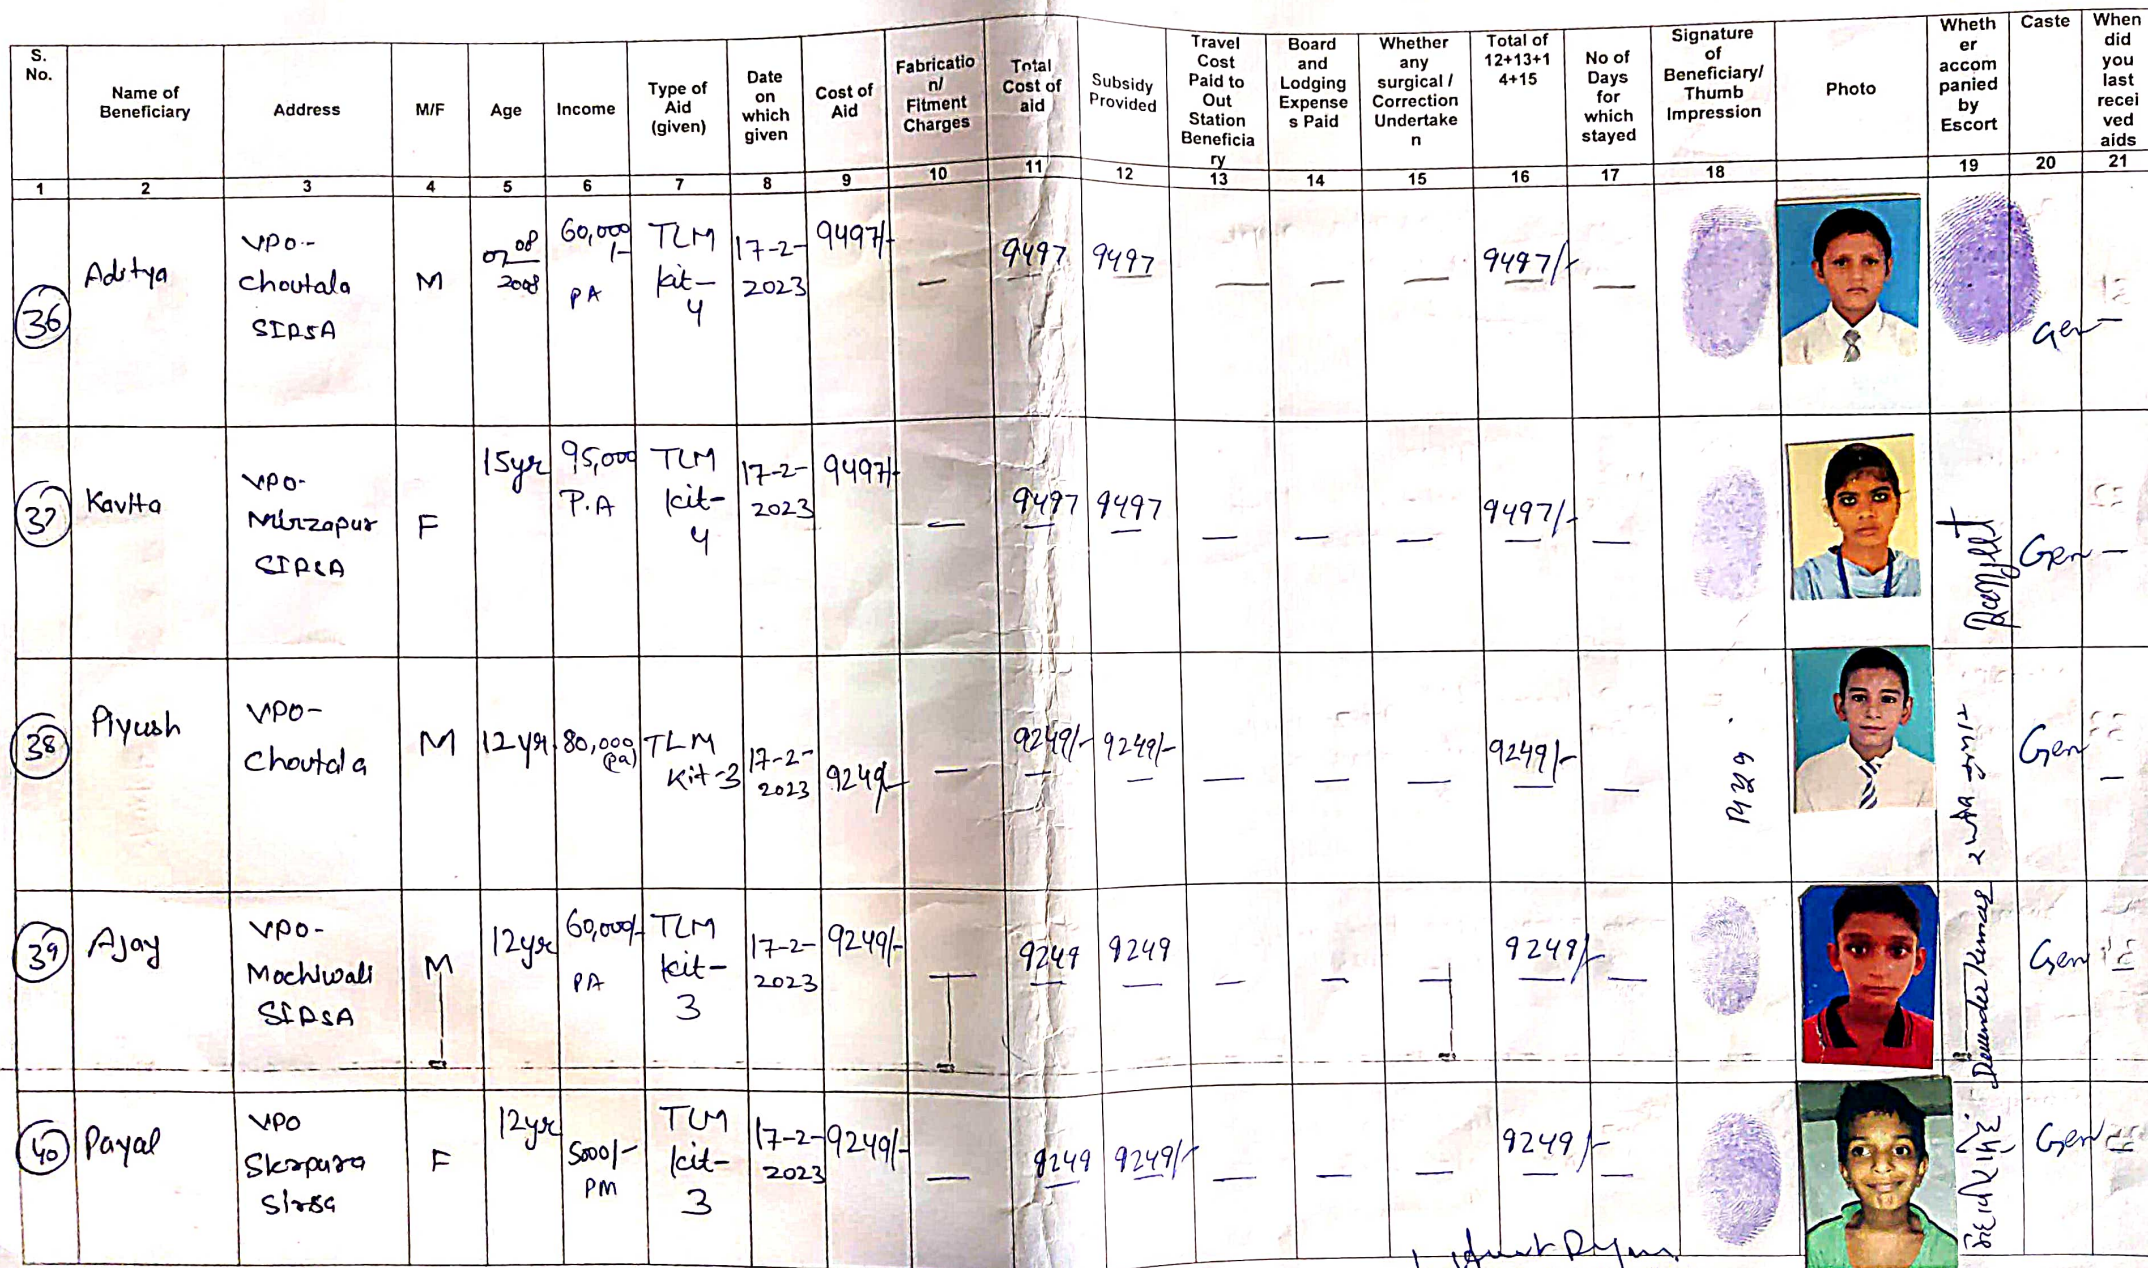 S. No.
Name of Beneficiary
Address
M/F
Age
Income
Type of Aid (given)
Date on which given
Cost of Aid
Fabricatio n/ Fitment Charges
Total Cost of aid
Subsidy Provided
Travel Cost Paid to Out Station Beneficia ry
Board and Lodging Expense s Paid
Whether any surgical / Correction Undertake n
Total of 12+13+1 4+15
No of Days for which stayed
Signature of Beneficiary/ Thumb Impression
Photo
Wheth er accom panied by Escort
Caste
When did you last recei ved aids
1 2 3 4 5 6 7 8 9 10 11 12 13 14 15 16 17 18 19 20 21
36 Aditya VPO- Choutala SIRSA M 08 2008 60,000/- PA TLM kit-4 17-2-2023 9497/- — 9497 9497 — — — 9497/- — Gen —
37 Kavita VPO- Mirzapur SIRSA F 15yr 95,000 P.A TLM kit-4 17-2-2023 9497/- — 9497 9497 — — — 9497/- — Gen —
38 Piyush VPO- Choutala M 12yr 80,000 (pa) TLM Kit-3 17-2-2023 9249/- — 9249/- 9249/- — — — 9249/- — Gen —
39 Ajay VPO- Mochiwali SIRSA M 12yr 60,000/- PA TLM kit-3 17-2-2023 9249/- — 9249 9249 — — — 9249/- — Devender Kumar Gen
40 Payal VPO Sirsa F 12yr 5000/- PM TLM kit-3 17-2-2023 9249/- — 9249 9249/- — — — 9249/- — Gen